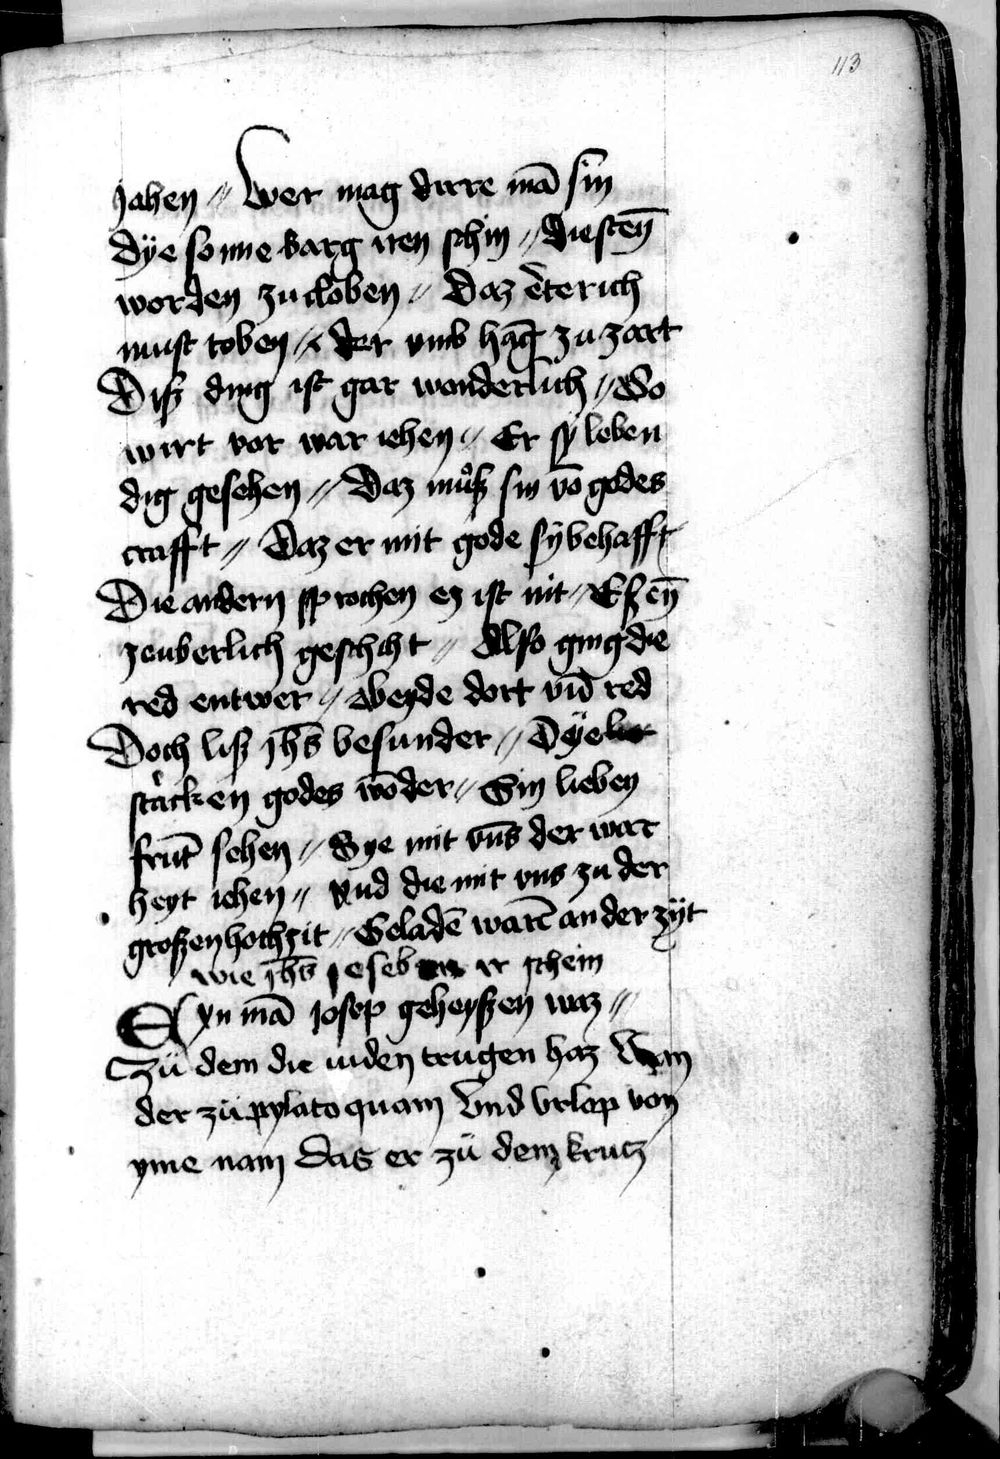 113
jahen // Wer mag dirre mā sin
Dÿe sonne barg iren schin // Die steȳ
worden zu cloben // Daz ēterich
must toben // Der vmb hāg zu zart
Diß ding ist gar wonderlich // So
wirt vor war iehen // Er sy leben
dig gesehen // Daz můß sin vō godes
crafft // Daz er mit gode sÿ behafft
Die andern sprochen eß ist nit // Eß eȳ
zeuberlich geschiht // Also ging die
red entwer // Beyde dort vn̄ red
Doch liß jhs̄ besunder // Dÿe
starcken godes wōder // Sin lieben
frūt sehen // Dye mit vns̄ der war
heyt iehen // Vnd die mit vns zu der
großen hochzit // Geladē warē an der zÿt
wie jhs̄ Joseb er schein
Eyn mā Josep geheyßen waz //
Zü dem die iuden trugen haz Wan
der zü pylato quam Vnd vrlap von
yme nam Das er zü dem krutz